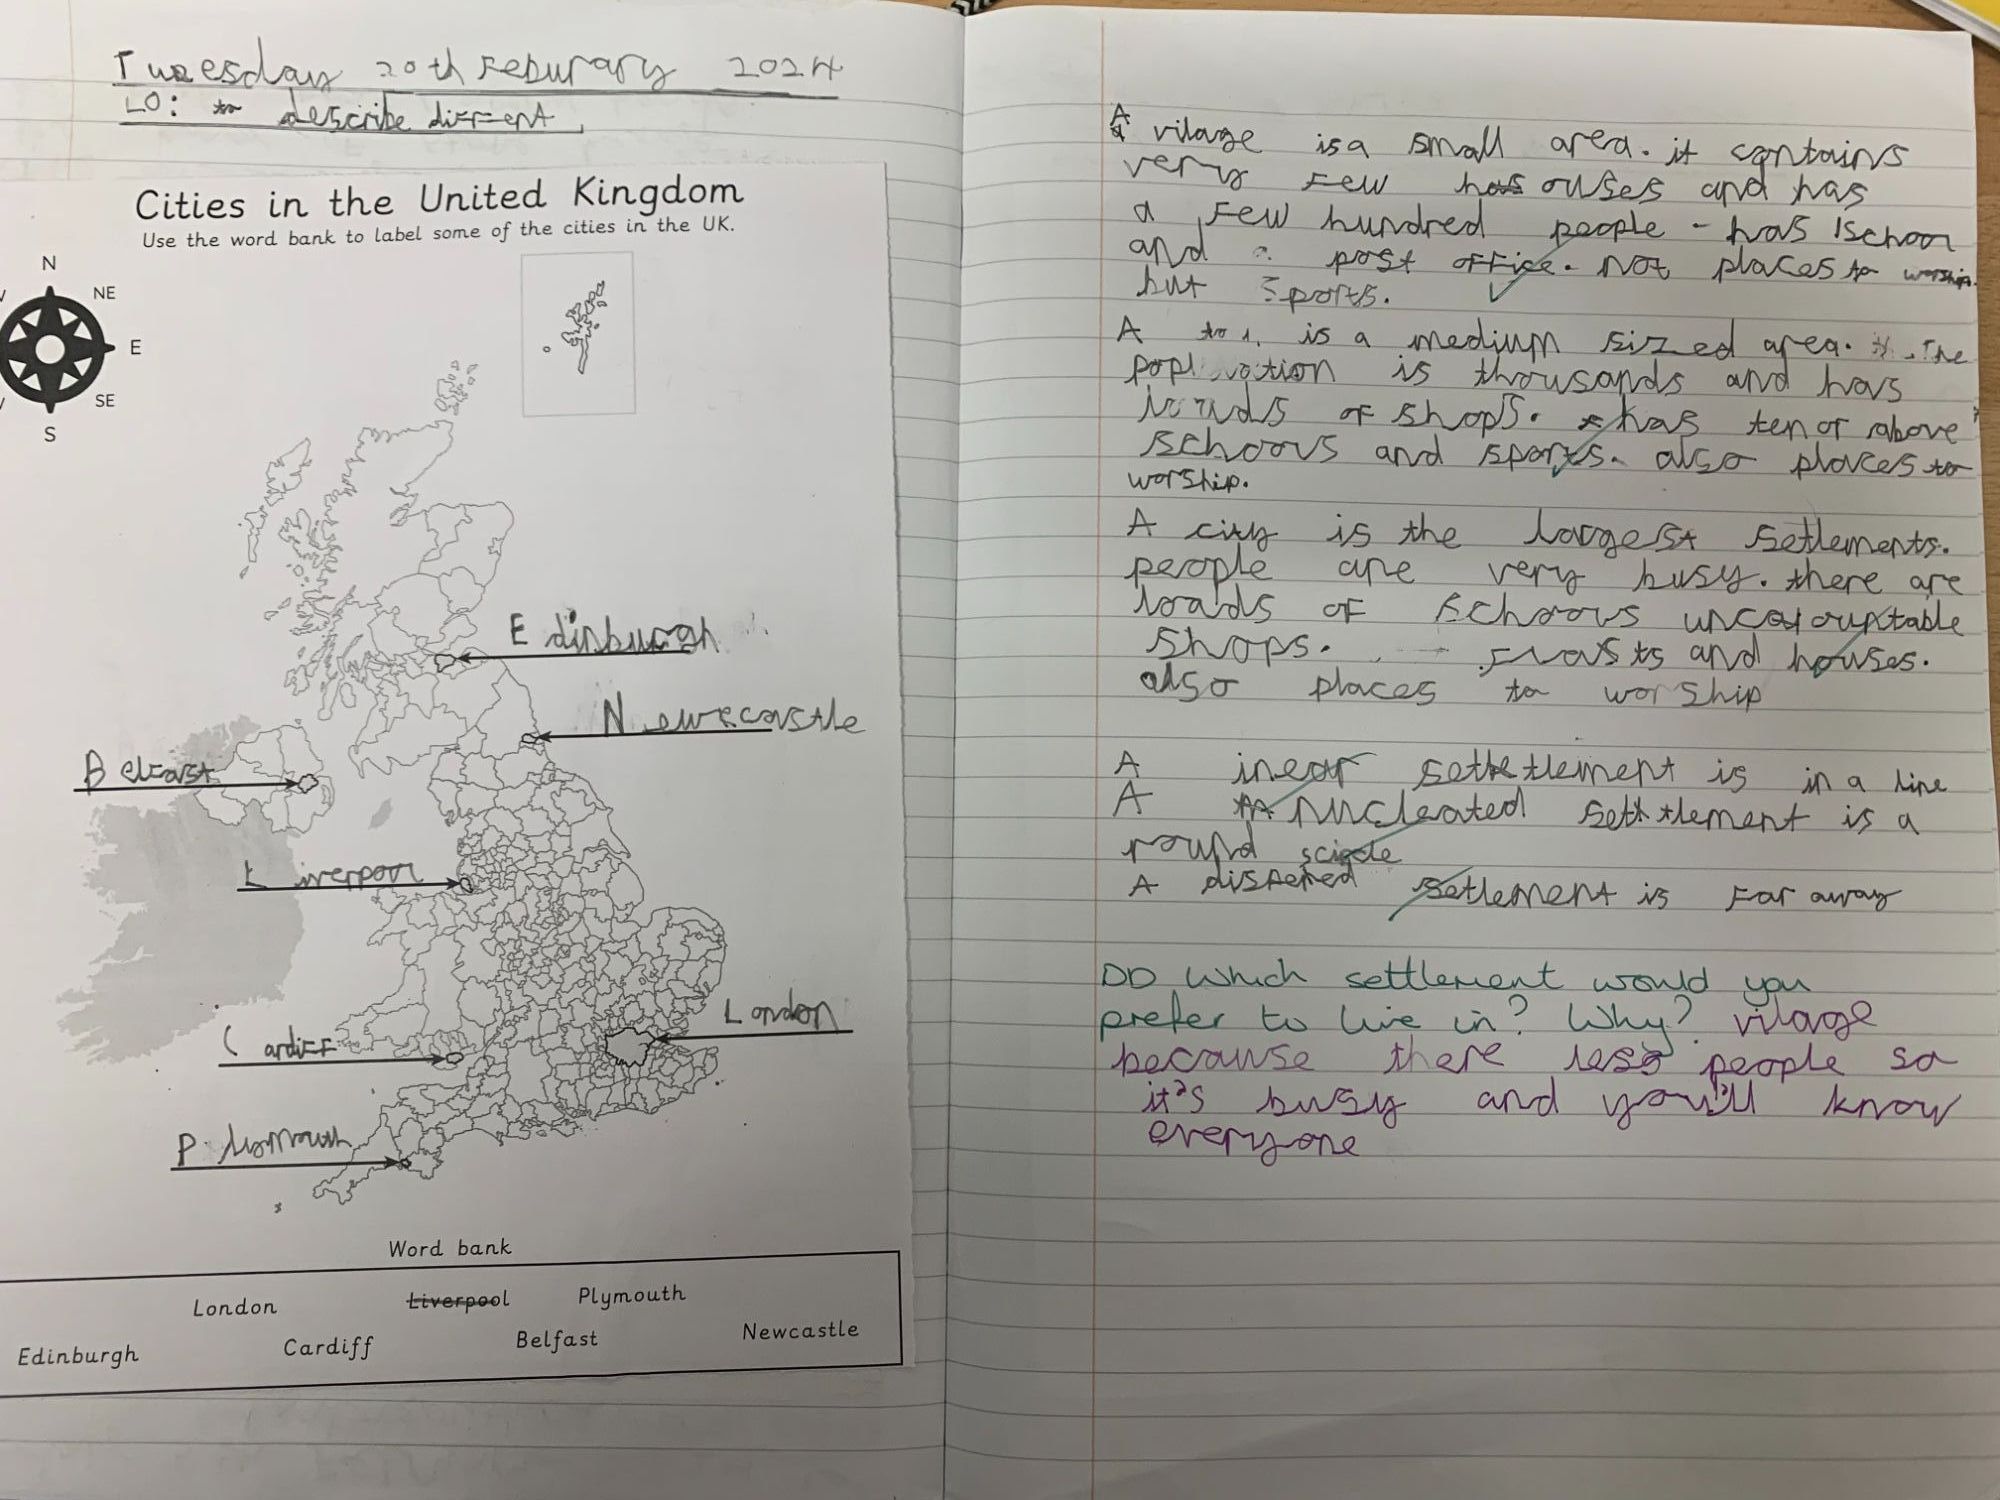 Tuesday 20th Feburary 2024
LO: to describe different
Cities in the United Kingdom
Use the word bank to label some of the cities in the UK.
N
NE
E
SE
S
Edinburgh
Newecastle
Belfast
Liverpool
London
Cardiff
Plymouth
Word bank
London Liverpool Plymouth
Edinburgh Cardiff Belfast Newcastle
A vilage is a small area. it contains
very few houses and has
a few hundred people - has 1school
and a post office. Not places to worship.
but sports.
A is a medium sized area. The
is thousands and has
loads of shops. has ten or above
schools and sports. also places to
worship.
A city is the largest settlements.
people are very busy. there are
loads of schools
shops. and houses.
also places to worship
A inear settlement is in a line
A Nucleated settlement is a
round
A dispered settlement is far away
DD Which settlement would you
prefer to live in? Why? vilage
because there less people so
it's busy and you'll know
everyone